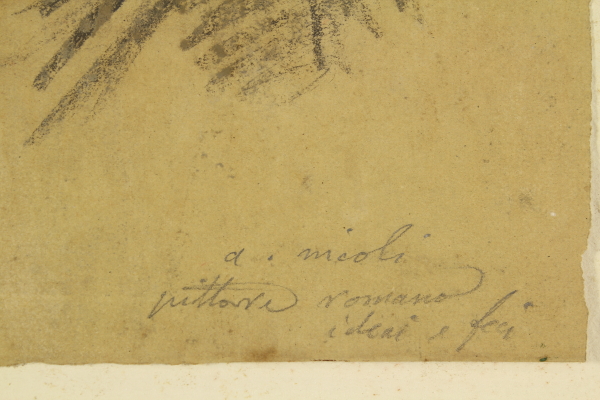 a. nicoli
pittore romano
ideai e feci